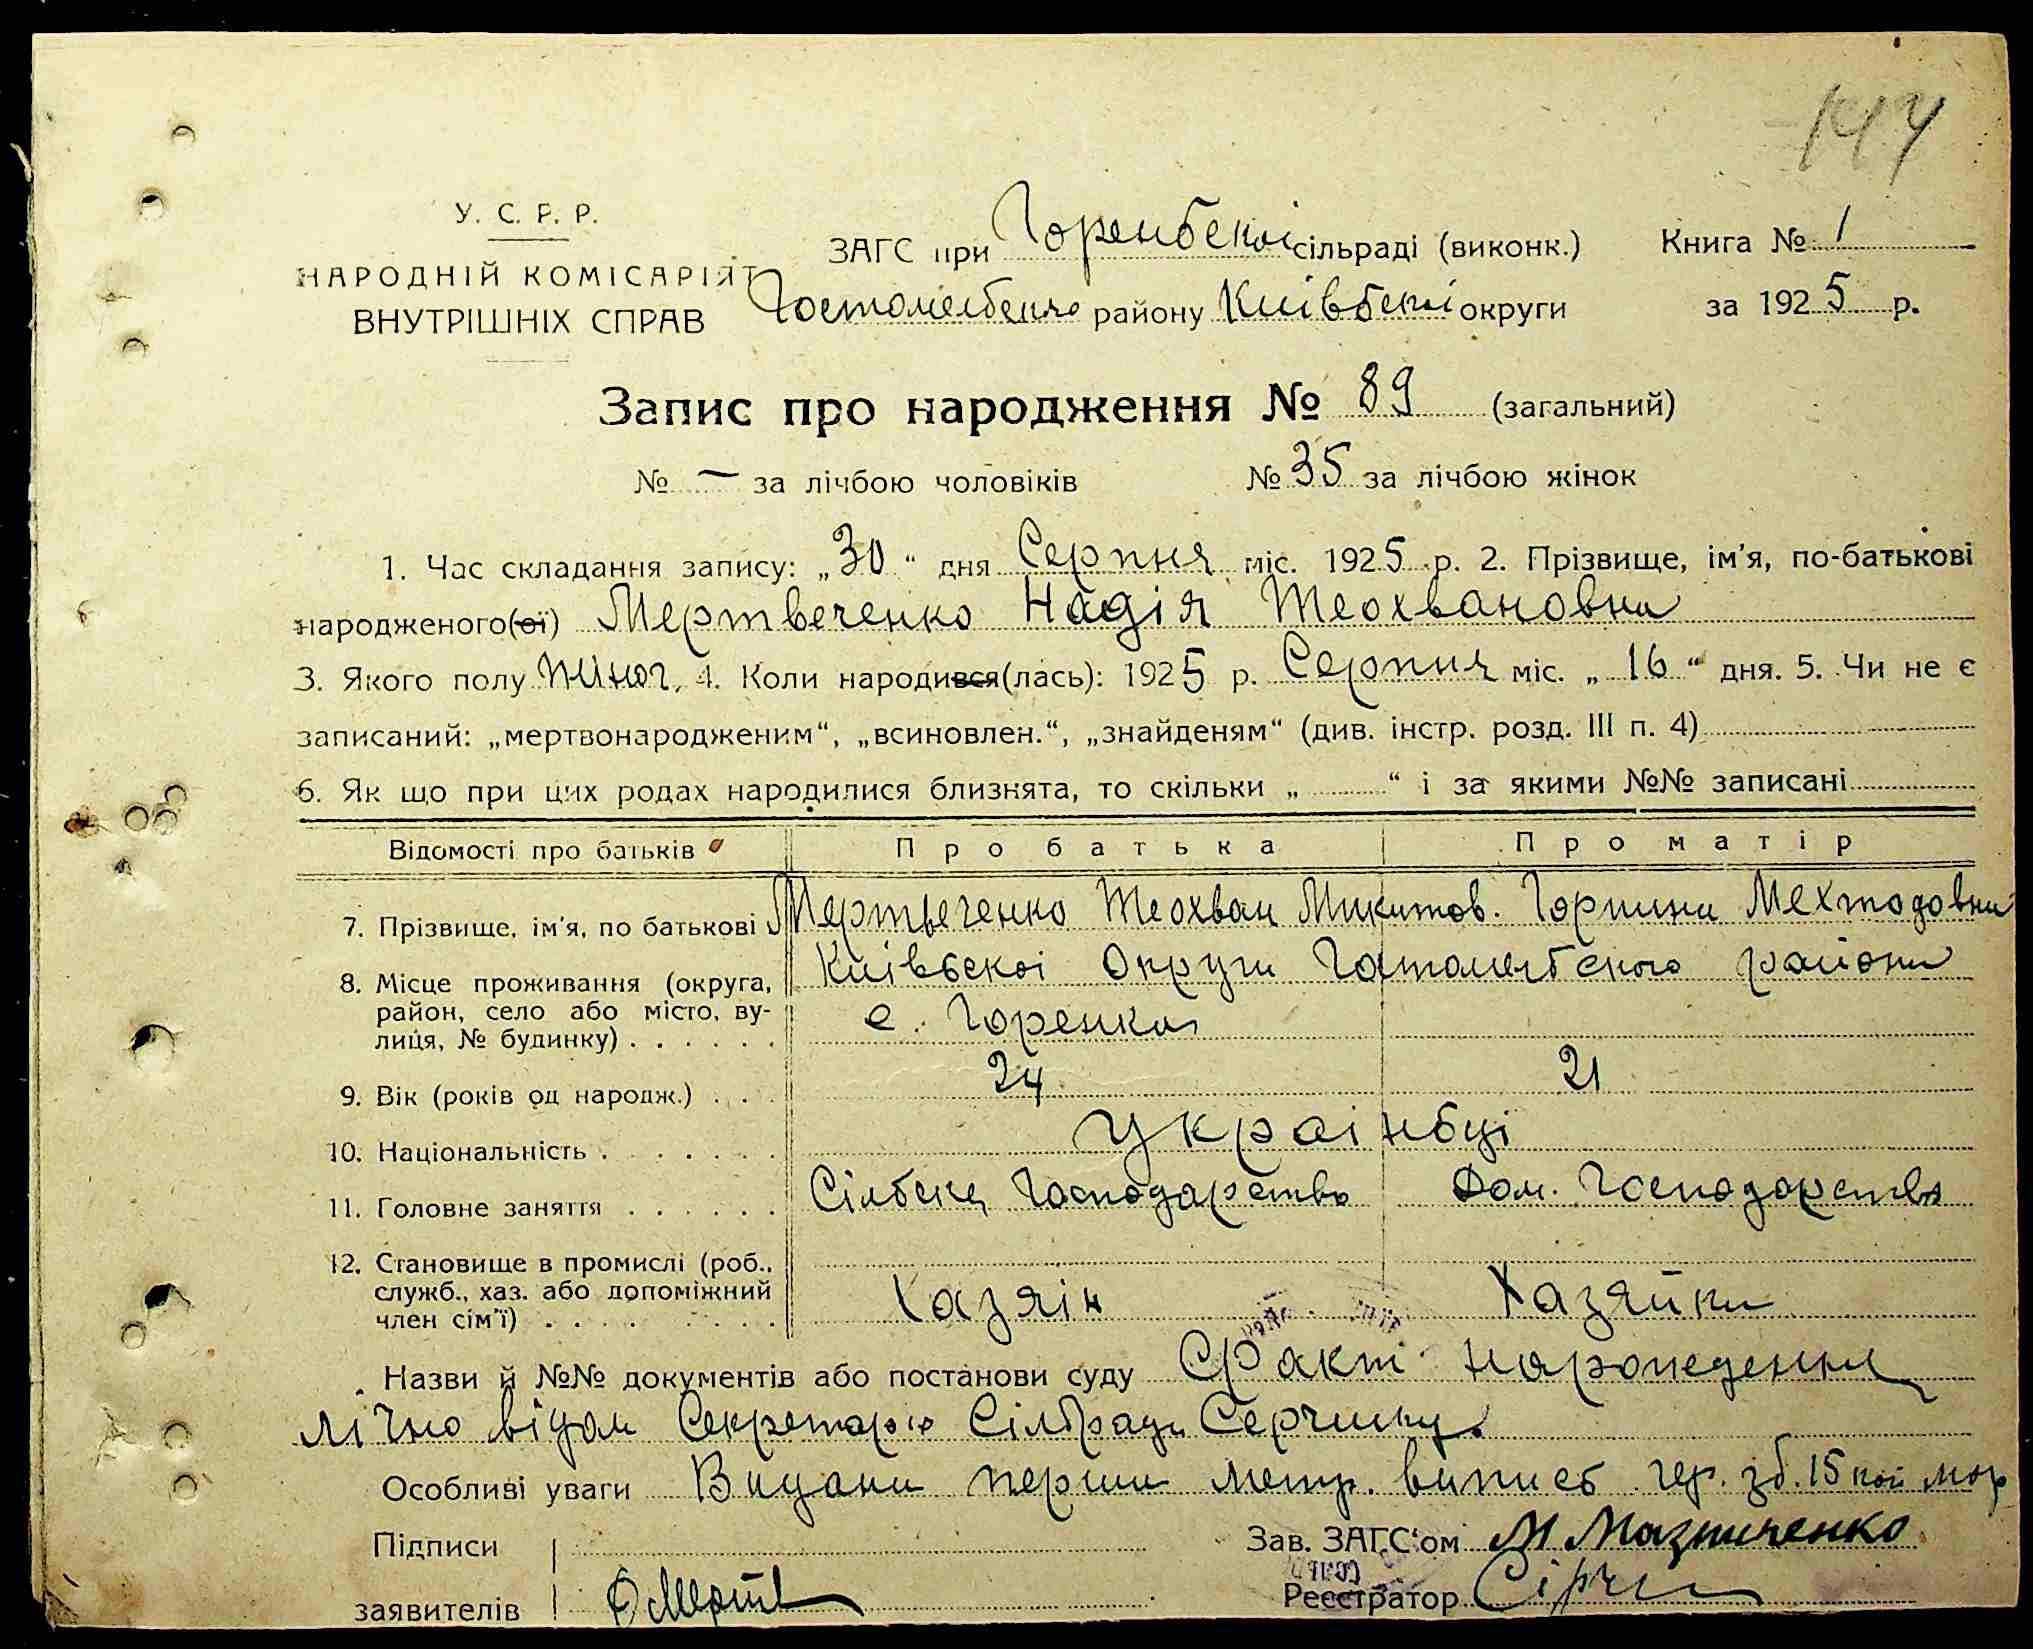 144
У. С. Р. Р.
НАРОДНІЙ КОМІСАРІЯТ
ВНУТРІШНІХ СПРАВ
ЗАГС при Горенській сільраді (виконк.) Книга № 1
Гостомельського району Київської округи за 1925 р.
Запис про народження № 89 (загальний)
№ — за лічбою чоловіків № 35 за лічбою жінок
1. Час складання запису: „30“ дня Серпня міс. 1925 р. 2. Прізвище, ім'я, по-батькові
народженого(ої) Мертвеченко Надія Теохвановна
3. Якого полу жіноч. 4. Коли народився(лась): 1925 р. Серпня міс. „16“ дня. 5. Чи не є
записаний: „мертвонародженим“, „всиновлен.“, „знайденям“ (див. інстр. розд. III п. 4)
6. Як що при цих родах народилися близнята, то скільки „ “ і за якими №№ записані
Відомості про батьків Про батька Про матір
7. Прізвище, ім'я, по батькові Мертвеченко Теохван Микитов. Горпина Мехтодовна
8. Місце проживання (округа, Київської Округи Гостомельського району
район, село або місто, ву- с. Горенка
лиця, № будинку)
9. Вік (років од народж.) 24 21
10. Національність Українці
11. Головне заняття Сільське Господарство Дом. Господарства
12. Становище в промислі (роб.,
служб., хаз. або допоміжний Хазяїн Хазяйка
член сім'ї)
Назви й №№ документів або постанови суду Факт народження
лічно відом Секретарю Сільради
Особливі уваги Видана перша метр. випись гер. зб. 15 коп
Підписи Зав. ЗАГС'ом М Мазниченко
заявителів Реєстратор